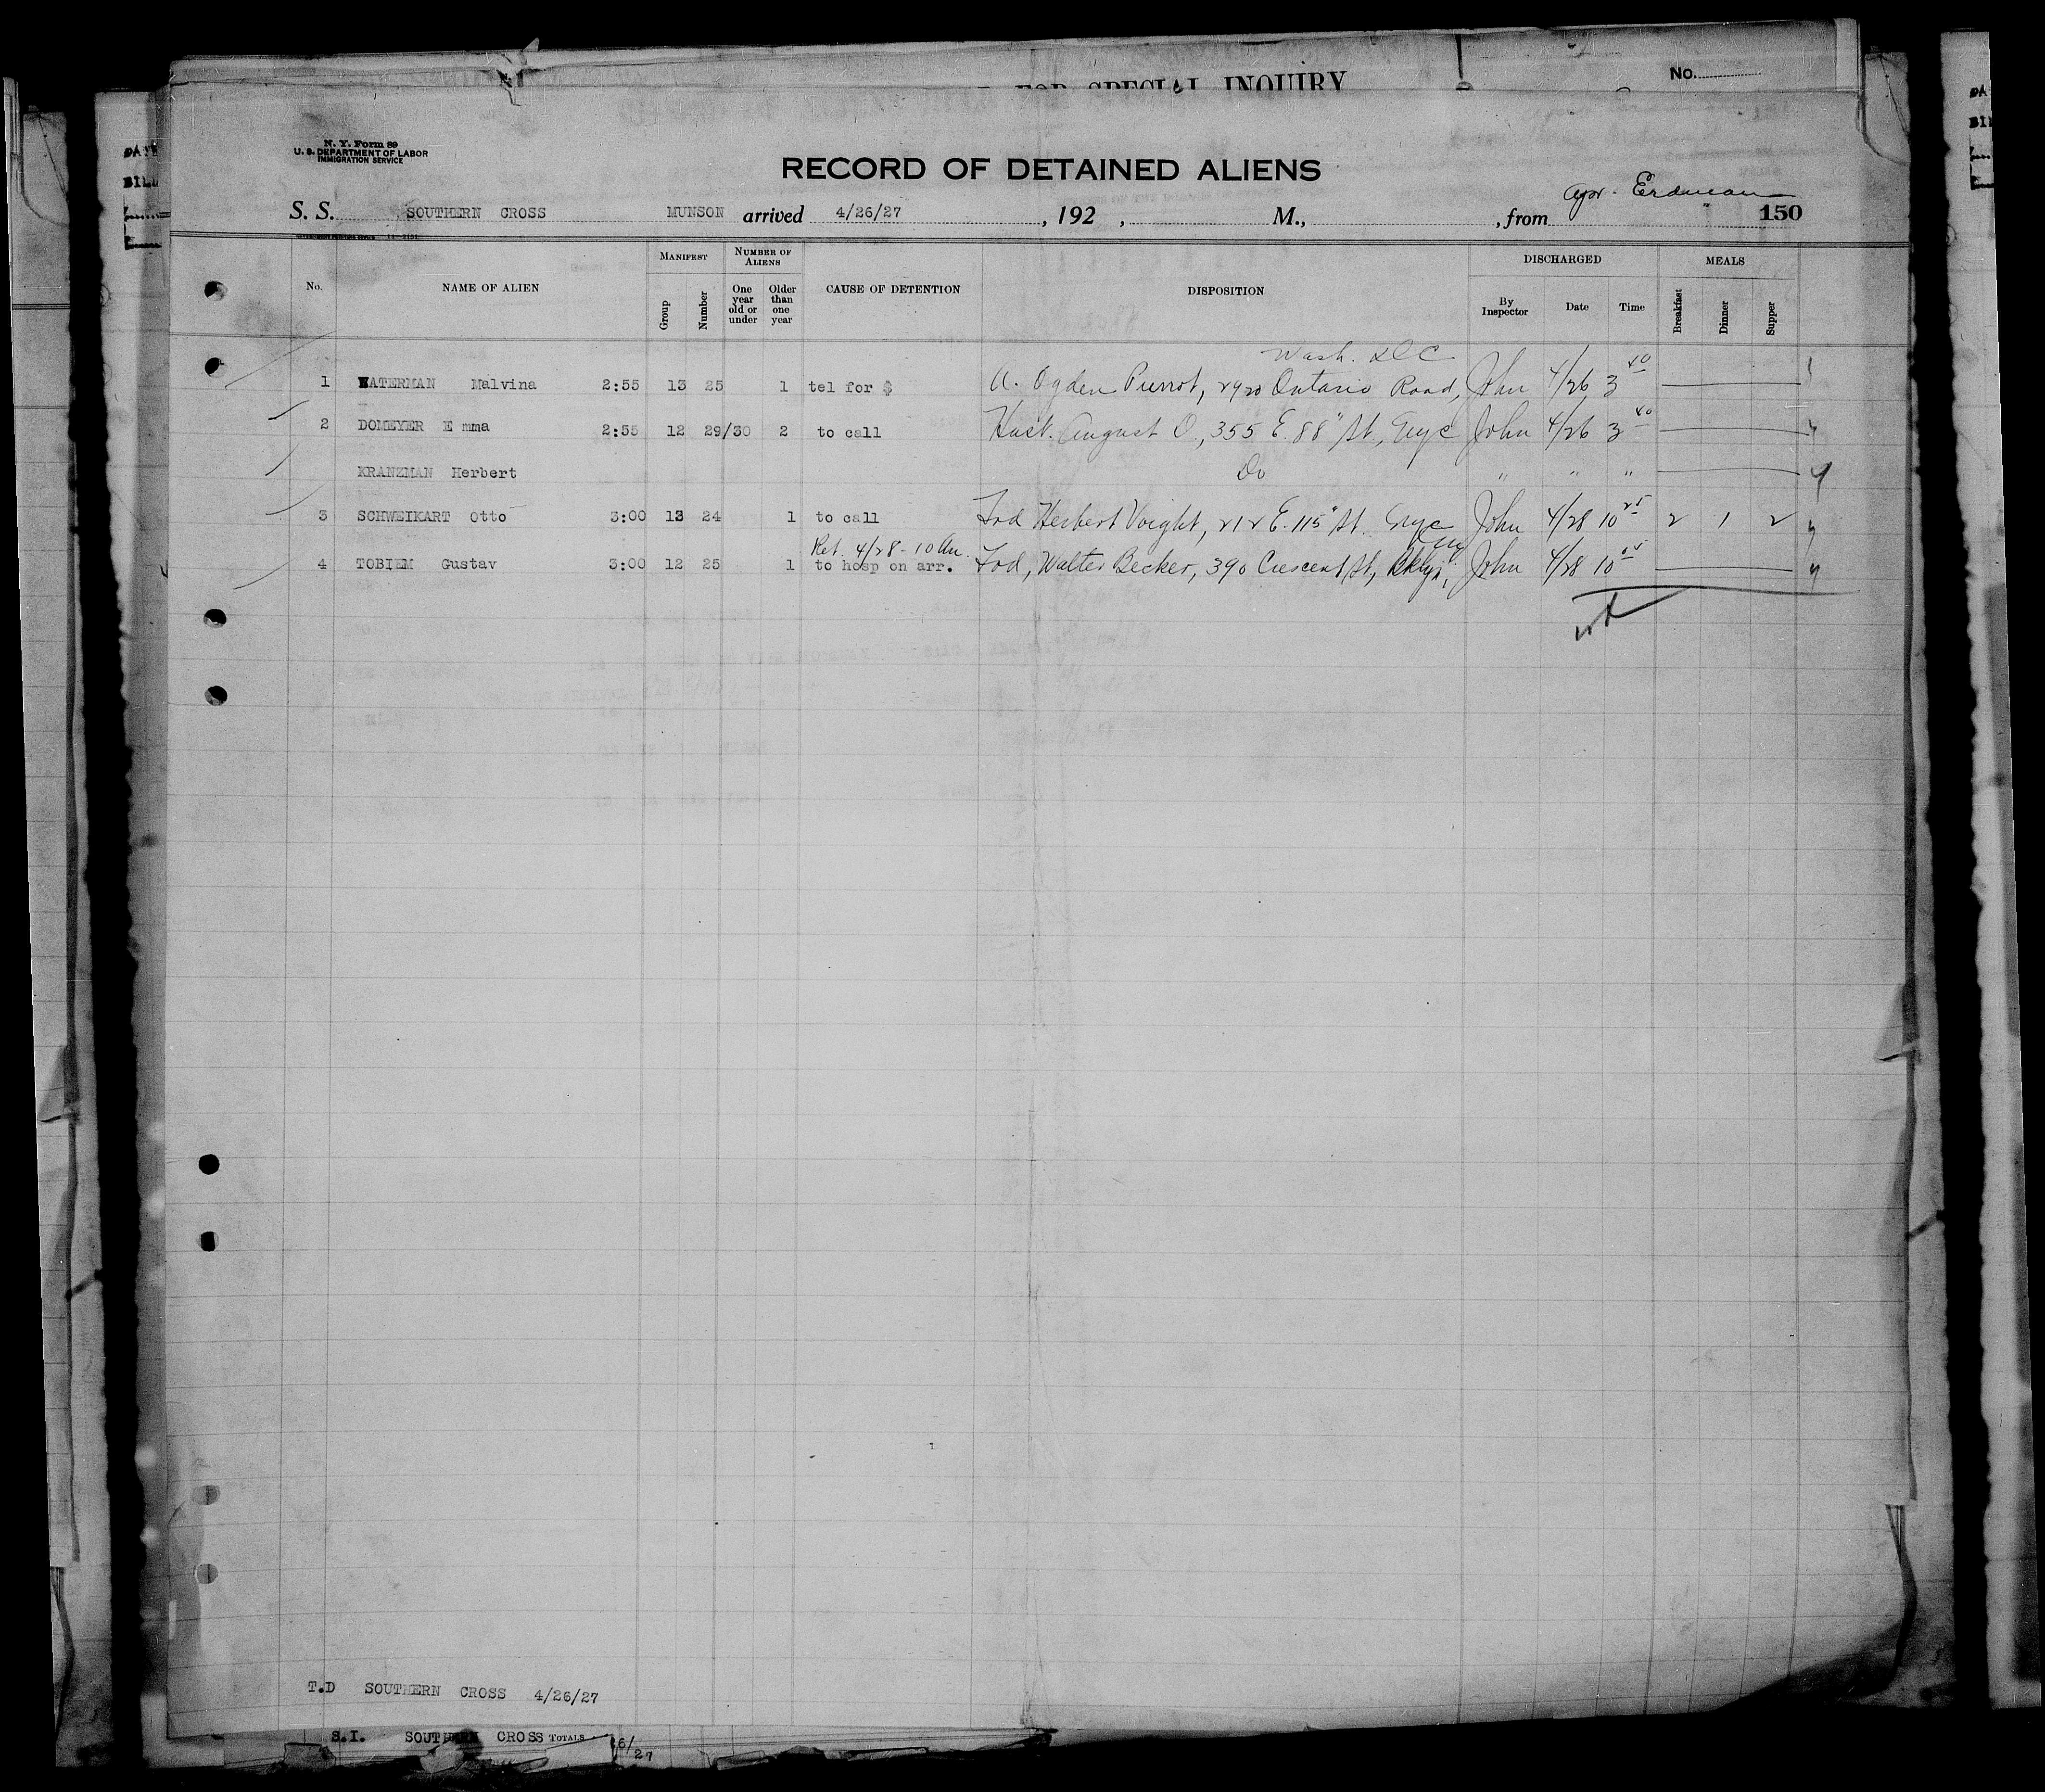 FOR SPECIAL INQUIRY
No.
N. Y. Form 89
U. S. DEPARTMENT OF LABOR
IMMIGRATION SERVICE
RECORD OF DETAINED ALIENS
Erdman
S. S. SOUTHERN CROSS MUNSON arrived 4/26/27, 192 , M., , from 150
No. NAME OF ALIEN MANIFEST Group Number NUMBER OF ALIENS One year old or under Older than one year CAUSE OF DETENTION DISPOSITION DISCHARGED By Inspector Date Time MEALS Breakfast Dinner Supper
Wash. D C
1 WATERMAN Malvina 2:55 13 25 1 tel for $ A. Ogden Pierrot, 2920 Ontario Road, John 4/26 3 40
2 DOMEYER E mma 2:55 12 29/30 2 to call Husb. August O, 355 E. 88" St., Nyc John 4/26 3 40
KRANZMAN Herbert Do " " "
3 SCHWEIKART Otto 3:00 13 24 1 to call Herbert Voight, 212 E. 115" St. Nyc John 4/28 10 25 2 1 2
Ret. 4/28 - 10 Am. Ny
4 TOBIEM Gustav 3:00 12 25 1 to hosp on arr. Walter Becker, 390 Crescent St, Bklyn, John 4/28 10
T.D SOUTHERN CROSS 4/26/27
S.I. SOUTHERN CROSS TOTALS 6/27